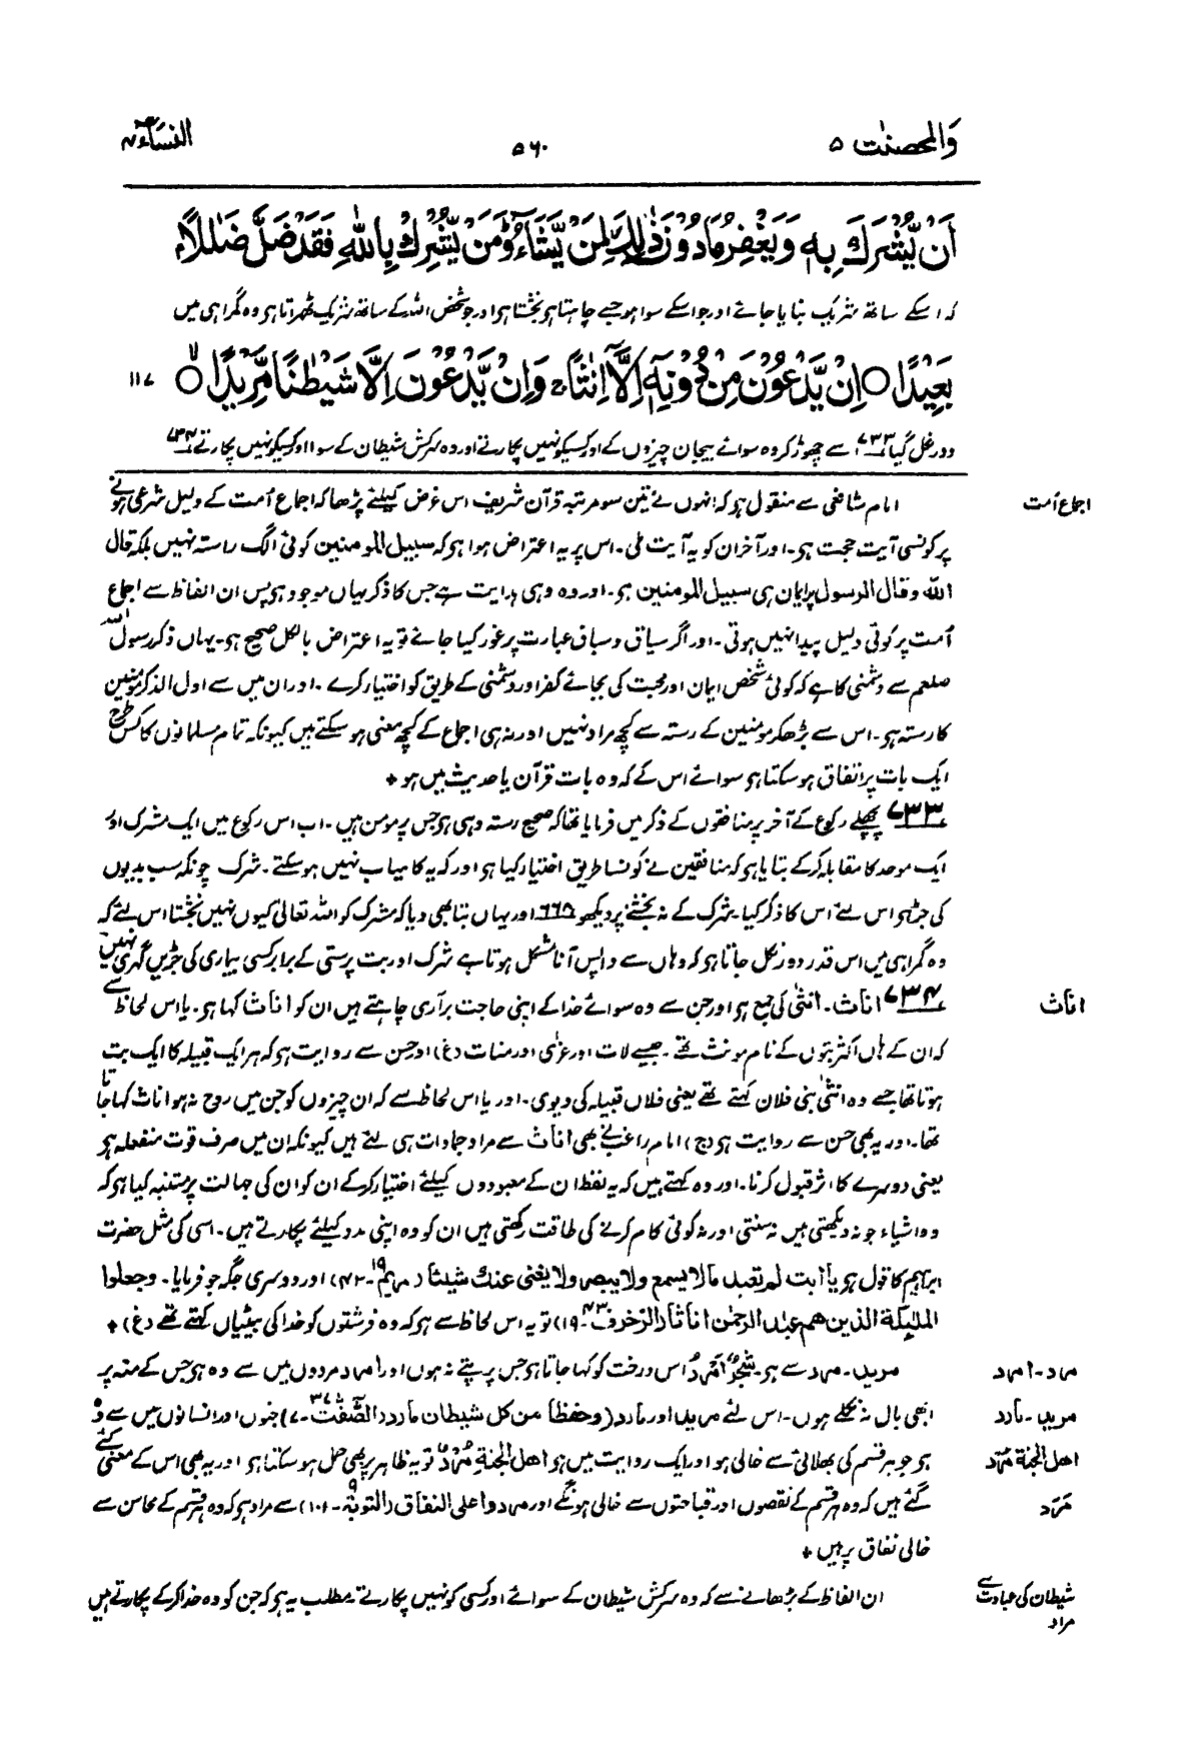 والمحصنٰت ۵
۵۶۰
النساء ۴
اَنْ يُّشْرَكَ بِهٖ وَيَغْفِرُ مَا دُوْنَ ذٰلِكَ لِمَنْ يَّشَآءُ ؕ وَمَنْ يُّشْرِكْ بِاللّٰهِ فَقَدْ ضَلَّ ضَلٰلًاۢ
کہ اسکے ساتھ شریک بنایا جائے اور جو اسکے سوا ہو جسے چاہتا ہو بخشتا ہو اور جو شخص اللہ کے ساتھ شریک ٹھہراتا ہو وہ گمراہی میں
بَعِيْدًا ○ اِنْ يَّدْعُوْنَ مِنْ دُوْنِهٖٓ اِلَّآ اِنٰثًا ۚ وَاِنْ يَّدْعُوْنَ اِلَّا شَيْطٰنًا مَّرِيْدًا ○ ۱۱۷
دور نکل گیا ۷۳۳ اسے چھوڑ کر وہ سوائے بیجان چیزوں کے اور کسیکو نہیں پکارتے اور وہ سرکش شیطان کے سوا اور کسیکو نہیں پکارتے ۷۳۴
اجماع اُمت
امام شافعی سے منقول ہو کہ انہوں نے تین سو مرتبہ قرآن شریف اس غرض کیلئے پڑھا کہ اجماع اُمت کے دلیل شرعی ہونے
پر کونسی آیت حجت ہو۔ اور آخر ان کو یہ آیت ملی۔ اس پر یہ اعتراض ہوا ہو کہ سبیل المومنین کوئی الگ راستہ نہیں بلکہ قال
اللہ و قال الرسول پر ایمان ہی سبیل المومنین ہو۔ اور وہ وہی ہدایت ہے جس کا ذکر یہاں موجود ہو پس ان الفاظ سے اجماع
اُمت پر کوئی دلیل پیدا نہیں ہوتی۔ اور اگر سیاق و سباق عبارت پر غور کیا جائے تو یہ اعتراض بالکل صحیح ہو۔ یہاں ذکر رسول اللہ
صلعم سے دشمنی کا ہے کہ کوئی شخص ایمان اور محبت کی بجائے کفر اور دشمنی کے طریق کو اختیار کرے۔ اور ان میں سے اول الذکر مومنین
کا رستہ ہو۔ اس سے بڑھکر مومنین کے رستہ سے کچھ مراد نہیں اور نہ ہی اجماع کے کچھ معنی ہو سکتے ہیں کیونکہ تمام مسلمانوں کا کس طرح
ایک بات پر اتفاق ہو سکتا ہو سوائے اس کے کہ وہ بات قرآن یا حدیث میں ہو ٭
۷۳۳ پچھلے رکوع کے آخر پر منافقوں کے ذکر میں فرمایا تھا کہ صحیح رستہ وہی ہو جس پر مومن ہیں۔ اب اس رکوع میں ایک مشرک اور
ایک موحد کا مقابلہ کرکے بتایا ہو کہ منافقین نے کونسا طریق اختیار کیا ہو اور کہ یہ کامیاب نہیں ہو سکتے۔ شرک چونکہ سب بدیوں
کی جڑ ہو اس لئے اس کا ذکر کیا۔ شرک کے نہ بخشنے پر دیکھو ۶۶۵ اور یہاں بتا بھی دیا کہ مشرک کو اللہ تعالیٰ کیوں نہیں بخشتا اس لئے کہ
وہ گمراہی میں اس قدر دور نکل جاتا ہو کہ وہاں سے واپس آنا مشکل ہوتا ہے شرک اور بت پرستی کے برابر کسی بیماری کی جڑیں گہری نہیں
اناث
۷۳۴ اناث۔ انثیٰ کی جمع ہو اور جن سے وہ سوائے خدا کے اپنی حاجت برآری چاہتے ہیں ان کو اناث کہا ہو۔ یا اس لحاظ سے
کہ ان کے ہاں اکثر بتوں کے نام مونث تھے۔ جیسے لات اور عزیٰ اور منات (غ) اور حسن سے روایت ہو کہ ہر ایک قبیلہ کا ایک بت
ہوتا تھا جسے وہ انثیٰ بنی فلان کہتے تھے یعنی فلاں قبیلہ کی دیوی۔ اور یا اس لحاظ سے کہ ان چیزوں کو جن میں روح نہ ہو اناث کہا جاتا
تھا۔ اور یہ بھی حسن سے روایت ہو (ج) امام راغب نے بھی اناث سے مراد جمادات ہی لئے ہیں کیونکہ ان میں صرف قوت منفعلہ ہو
یعنی دوسرے کا اثر قبول کرنا۔ اور وہ کہتے ہیں کہ یہ لفظ ان کے معبودوں کیلئے اختیار کرکے ان کو ان کی جہالت پر متنبہ کیا ہو کہ
وہ اشیاء جو نہ دیکھتی ہیں نہ سنتی اور نہ کوئی کام کرنے کی طاقت رکھتی ہیں ان کو وہ اپنی مدد کیلئے پکارتے ہیں۔ اسی کی مثل حضرت
ابراہیم کا قول ہو یا ابت لم تعبد مالا یسمع ولا یبصر ولا یغنی عنك شیئا (مریم ۱۹-۴۲) اور دوسری جگہ جو فرمایا۔ وجعلوا
الملٰئکة الذین هم عبٰد الرحمٰن اناثا (الزخرف ۴۳-۱۹) تو یہ اس لحاظ سے ہو کہ وہ فرشتوں کو خدا کی بیٹیاں کہتے تھے (غ) ٭
مرد۔ امرد
مرید۔ مرد سے ہو۔ شَجَرٌ اَمْرَدُ اس درخت کو کہا جاتا ہو جس پر پتے نہ ہوں اور امرد مردوں میں سے وہ ہو جس کے منہ پر
مرید۔ مارد
ابھی بال نہ نکلے ہوں۔ اس لئے مرید اور مارد (وحفظا من کل شیطان مارد (الصّٰفّٰت ۳۷-۷) جنوں اور انسانوں میں سے وہ
اهل الجنة مُرْد
ہو جو ہر قسم کی بھلائی سے خالی ہو اور ایک روایت میں ہو اهل الجنةِ مُرْدٌ تو یہ ظاہر پر بھی حمل ہو سکتا ہو اور یہ بھی اس کے معنی کئے
مَرَد
گئے ہیں کہ وہ ہر قسم کے نقصوں اور قباحتوں سے خالی ہونگے اور مردوا علی النفاق (التوبة ۹-۱۰۱) سے مراد ہو کہ وہ ہر قسم کے محاسن سے
خالی نفاق پر ہیں ٭
شیطان کی عبادت سے مراد
ان الفاظ کے بڑھانے سے کہ وہ سرکش شیطان کے سوائے اور کسی کو نہیں پکارتے مطلب یہ ہو کہ جن کو وہ خدا کرکے پکارتے ہیں